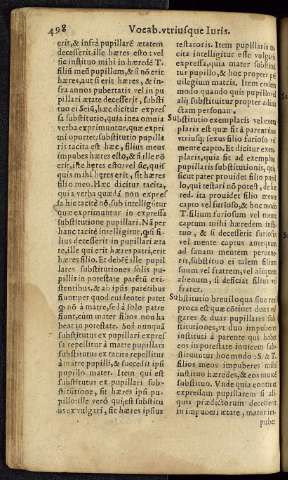 498 Vocab. vtriusque Iuris.
erit, & infra pupillarē ætatem
decesserit. ille hæres esto: vel
sic instituo mihi in hæredē T.
filiū meū pupillum, & si nō erit
hæres, aut si erit hæres, & in
fra annos pubertatis vel in pu
pillari ætate decesserit, substi
tuo ei Seiū, hæc dicitur expres
sa substitutio, quia inea omnia
verba exprimuntur, quæ expri
mi oportet, substitutio pupilla
ris tacita est hæc, filius meus
impubes hæres esto, & si ille nō
erit, ille hæres esto: vel sic, qui
quis mihi hæres erit, sit hæres
filio meo. Hæc dicitur tacita,
quia verba quædā non expres
sa hic tacitè nō, sub intelligitur
quæ exprimuntur in expressa
substitutione pupillari. Nā per
hanc tacitè intelligitur, quòd si fi-
lius decesserit in pupillari æta
te, ille qui erit hæres patri, erit
hæres filio. Et debēt ille pupil
lares substitutiones solis pu-
pillis in potestate patris exi-
stentibus, & ab ipsis patribus
fiunt: per quod cui liquet patet
quod nō à matre, sed à solo patre
fiunt, cum mater filios non ha
beat in potestate. Sed nunquid
substitutus ex pupillari expres
sa repellitur à matre pupillari
substitutus ex tacita repellitur
à matre pupilli, & succedit ipsi
pupillo mater. Item qui est
substitutus ex pupillari sub-
stitutione, sit hæres ipsi pu-
pillo: ille verò qui est substitu
tus ex vulgari, sit hæres ipsius
testatoris. Item pupillaris ta
cita intelligitur esse vulgaris
expressa, quia mater substitui
tur pupillo, & hoc propter pri
uilegium matris. Item eodem
modo quod patet à pupillo vel
alij substituitur propter odium
dictam personam.
Substitutio exemplaris vel exem
plaris est quæ fit à parentibus
vtriusq; sexus filio furioso vel
mente capto. Et dicitur exem
plaris, quia sit ad exemplum
pupillaris substitutionis, quia
sicut pater prouidet filio pupil
lo, qui testari nō potest, de hæ
red. ita prouidet filio tempore
capto vel furioso, & hoc modo
T. filium furiosum vel mente
captum mihi hæredem insti-
tuo, & si decesserit furiosus
vel mente captus antequam
ad sanam mentem peruene-
rit, substituo ei talem filium
suum vel fratrem, vel aliquem
alienum, si decedat sine filio
& fratre.
Substitutio breuiloqua siue reci
proca est quæ continet duas vul
gares & duas pupillares sub-
stitutiones, vt duo impuberes
instituti à parente qui habet
eos in potestate inuicem sub-
stituuntur hoc modo: S. & T.
filios meos impuberes mihi
instituo hæredes, & eos inuicē
substituo. Vnde quia eontinet
expressam pupillarem si ali-
quis prædictorum decesserit
in impuberi ætate, mater im-
pube-